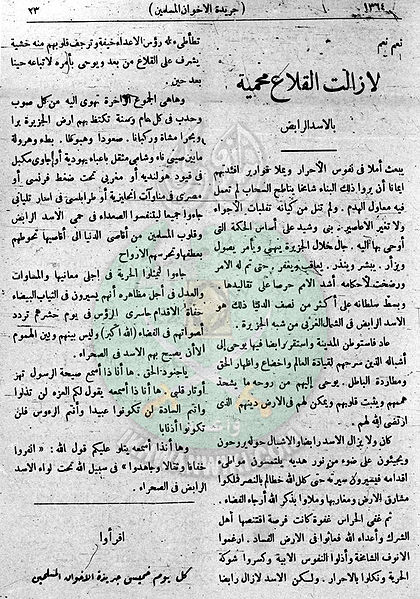 ١٣٦٤
( جريدة الاخوان المسلمين )
٢٣
نعم نعم
لا زالت القلاع محمية
بالاسد الرابض
يبعث أملا في نفوس الأحرار ويملأ قوارير افئدتهم
ايمانا أن يروا ذلك البناء شامخا يناطح السحاب لم تعمل
فيه معاول الهدم . ولم تنل من كيانه تقلبات الأجواء
ولا تثير الأعاصير. بنى وشيد على أساس الحكمة التى
أوحى بها اليه . جال خلال الجزيرة ينهى ويأمر يصول
ويزأر . يبشر وينذر . يعاقب ويغفر. حتى تم له الامر
ورضخت لأحكامه . أشد الأمم حرصا على تقاليدها .
وبسط سلطانه على أكثر من نصف الدنيا ذلك هو
الاسد الرابض في الشمال الغربى من شبه الجزيرة .
عاد فاستوطن المدينة واستقر رابضا فيها يوحى إلى
أشباله الدين سرحهم لقيادة العالم واخضاع واظهار الحق
ومطاردة الباطل. يوحى إليهم من روحه ما يشحذ
هممهم ويثبت قلوبهم ويمكن لهم في الارض دينهم الذى
ارتضى الله لهم .
كان ولا يزال الاسد رابضا والاشبال حوله يروحون
ويجيئون على ضوء من نور هديه يلتمسون مواطىء
اقدامه فيتحركون سيرته حتى كلل الله خطاهم بالنصر فملكوا
مشارق الارض ومغاربها وملاوا بذكر الله أرجاء الفضاء .
ثم غفى الحراس غفوة كانت فرصة افتنصها أهل
الشرك وأعداء الله فعاثوا في الارض الفساد . ارغموا
الانوف الشامخة وأذلوا النفوس الابية وكسروا شوكة
الحرية ونكلوا بالأحرار . ولكن الاسد لازال رابضا
تطأطىء له رؤس الاعداء خيفة وترجف قلوبهم منه خشية
يشرف على القلاع من بعد ويوحى بأمره لاتباعه حينا
بعد حين .
وهاهى الجموع الزاخرة تهوى اليه من كل صوب
وحدب في كل عام وسنة تكتظ بهم ارض الجزيرة برا
وبحرا مشاة وركبانا . صعودا وهبوطا . بطاء وهرولة
مابين صينى ناء وشامى مثقل باعباء يهودية أو جاوى مكبل
في قيود هولندية أو مغربى تحت ضغط فرنسى أو
مصرى في مناورات انجليزية أو طرابلسى في اسار تليانى
جاءوا جميعا ليتنفسوا الصعداء في حمى الاسد الرابض
وقلوب المسلمين من أقاصى الدنيا الى أقاصيها تحوطهم
بعطفها وتحرسهم الارواح
جاءوا ليمثلوا الحرية في اجلى معانيها والمساوات
والعدل في أجل مظاهره أنهم يسيرون في الثياب البيضاء
حفاة الاقدام حاسرى الرؤس في يوم حشرهم تردد
أصواتهم في الفضاء ( الله أكبر ) وليس بينهم وبين الهموم
الا أن يصيح بهم الاسد في الصحراء .
ياجنود الحق . ها أنا ذا أسمع صيحة الرسول تهز
أوتار قلبى . ها أنا ذا أسمعه يقول لكم العزة لن تذلوا
وانتم السادة لن تكونوا عبيدا وأنتم الرءوس فلن
تكونوا أذنابا
وها أنذا أسمعه يتلو عليكم قول الله : « انفروا
خفافا وثقالا وجاهدوا » في سبيل الله تحت لواء الاسد
الرابض في الصحراء .
اقرأوا
كل يوم خميس جريدة الاخوان المسلمين